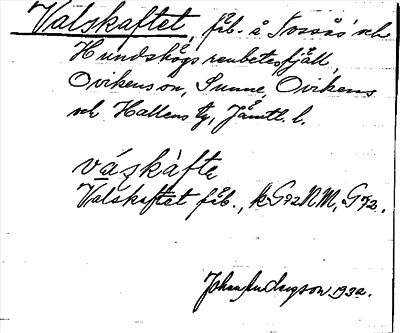 Valskaftet, fäb. å Sossås' och
Hundshögs renbetesfjäll,
Ovikens sn, Sunne, Ovikens
och Hallens tg, Jämtl. l.
váṣkàfte
Valskaftet fäb., k G72NM, G72.
Johan 1932.